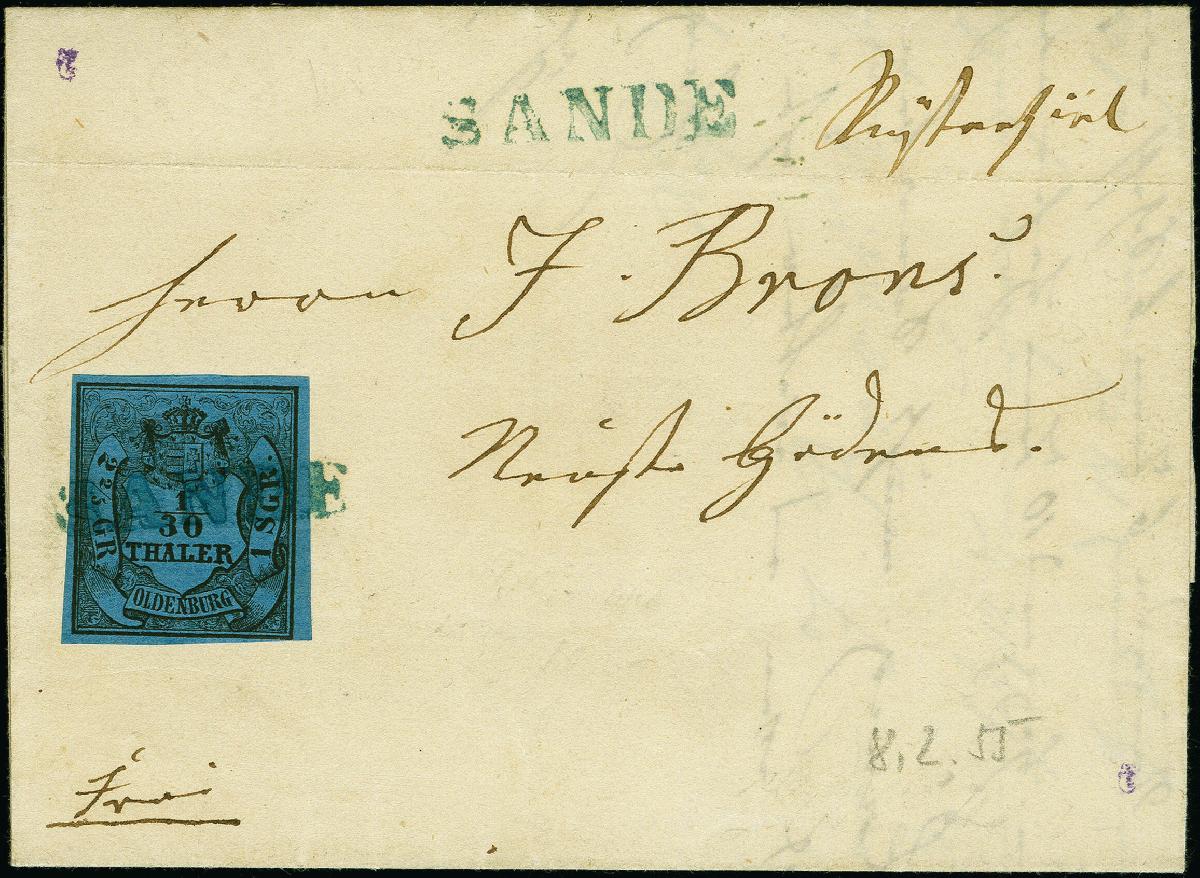 SANDE
Rüstersiel
Herrn J. Brons.
Neustadt Gödens.
SANDE
2 2/5 GR
1 SGR.
1/30
THALER
OLDENBURG
Frei
8.2.55